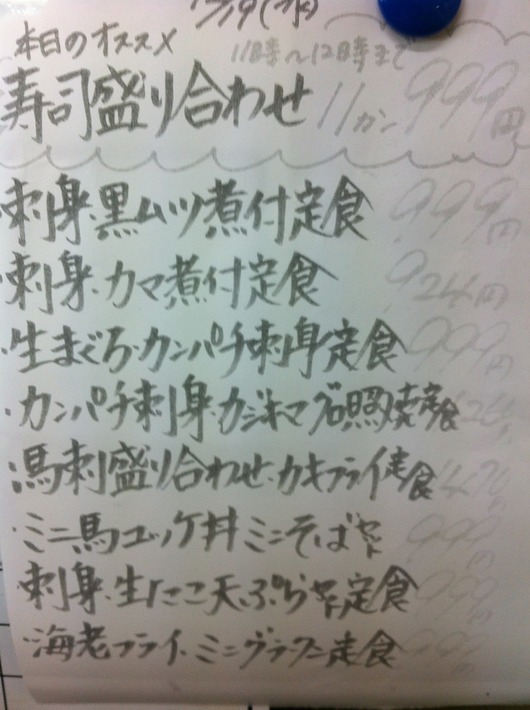 本日のオススメ 11時〜12時まで
寿司盛り合わせ 11カン 999円
刺身・黒ムツ煮付定食 999円
・刺身・カマ煮付定食 924円
・生まぐろ・カンパチ刺身定食 999円
・カンパチ刺身・カジキマグロ照焼定食
・馬刺盛り合わせ・カキフライ定食
・ミニ馬ユッケ丼ミニそばセット 999円
・刺身・生たこ天ぷら定食 999円
・海老フライ・ミニグラタン定食 999